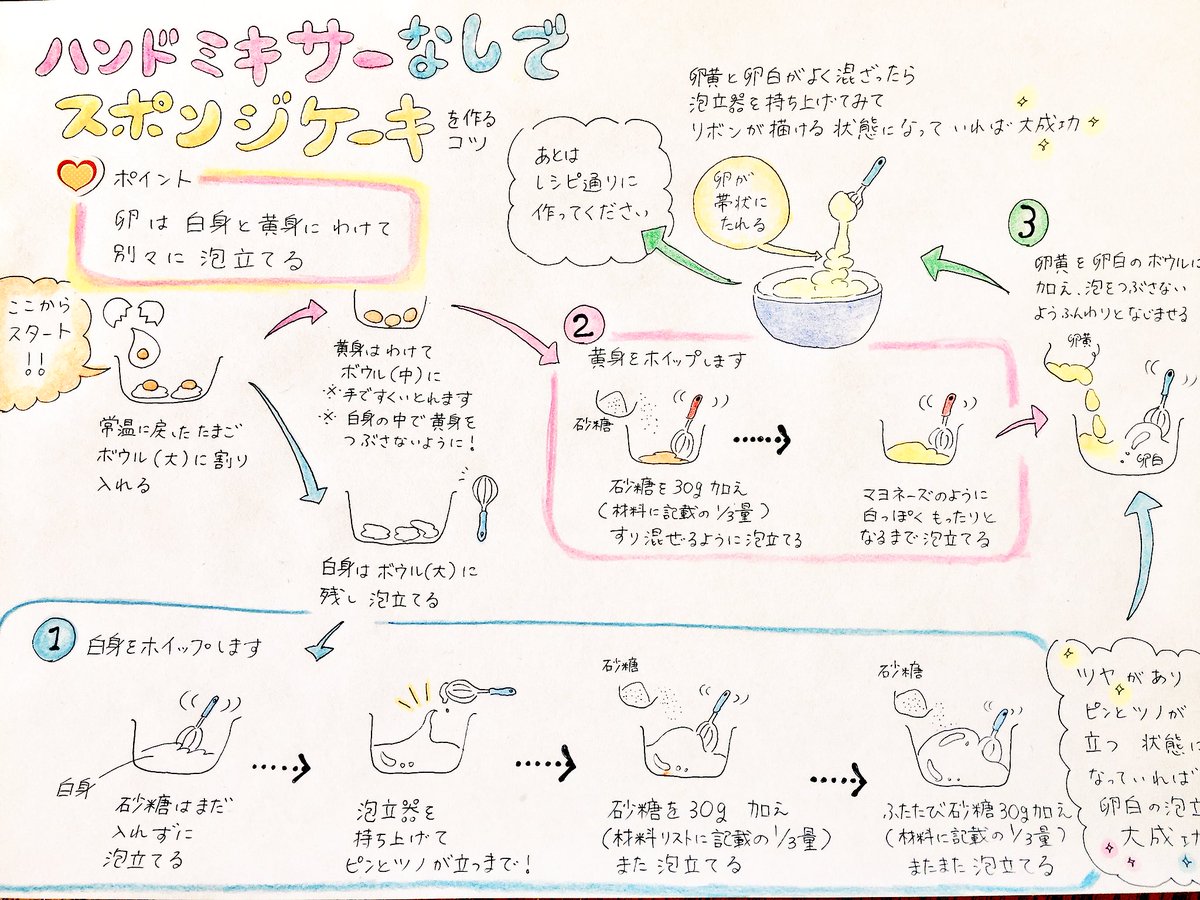 ハンドミキサーなしで
スポンジケーキ
を作る
コツ
ポイント
卵は白身と黄身にわけて
別々に泡立てる
ここから
スタート
!!
常温に戻したたまご
ボウル(大)に割り
入れる
黄身はわけて
ボウル(中)に
※手ですくいとれます
※白身の中で黄身を
つぶさないように!
白身はボウル(大)に
残し 泡立てる
1 白身をホイップします
白身
砂糖はまだ
入れずに
泡立てる
泡立器を
持ち上げて
ピンとツノが立つまで!
砂糖
砂糖を30g 加え
(材料リストに記載の1/3量)
また 泡立てる
砂糖
ふたたび砂糖30g加え
(材料に記載の1/3量)
またまた 泡立てる
ツヤがあり
ピンとツノが
立つ 状態に
なっていれば
卵白の泡立
大成功
2
黄身をホイップします
砂糖
砂糖を30g 加え
(材料に記載の1/3量)
すり混ぜるように泡立てる
マヨネーズのように
白っぽくもったりと
なるまで 泡立てる
3
卵黄を卵白のボウルに
加え、泡をつぶさない
ようふんわりとなじませる
卵黄
卵白
卵黄と卵白がよく混ざったら
泡立器を持ち上げてみて
リボンが描ける状態になっていれば大成功
卵が
帯状に
たれる
あとは
レシピ通りに
作ってください